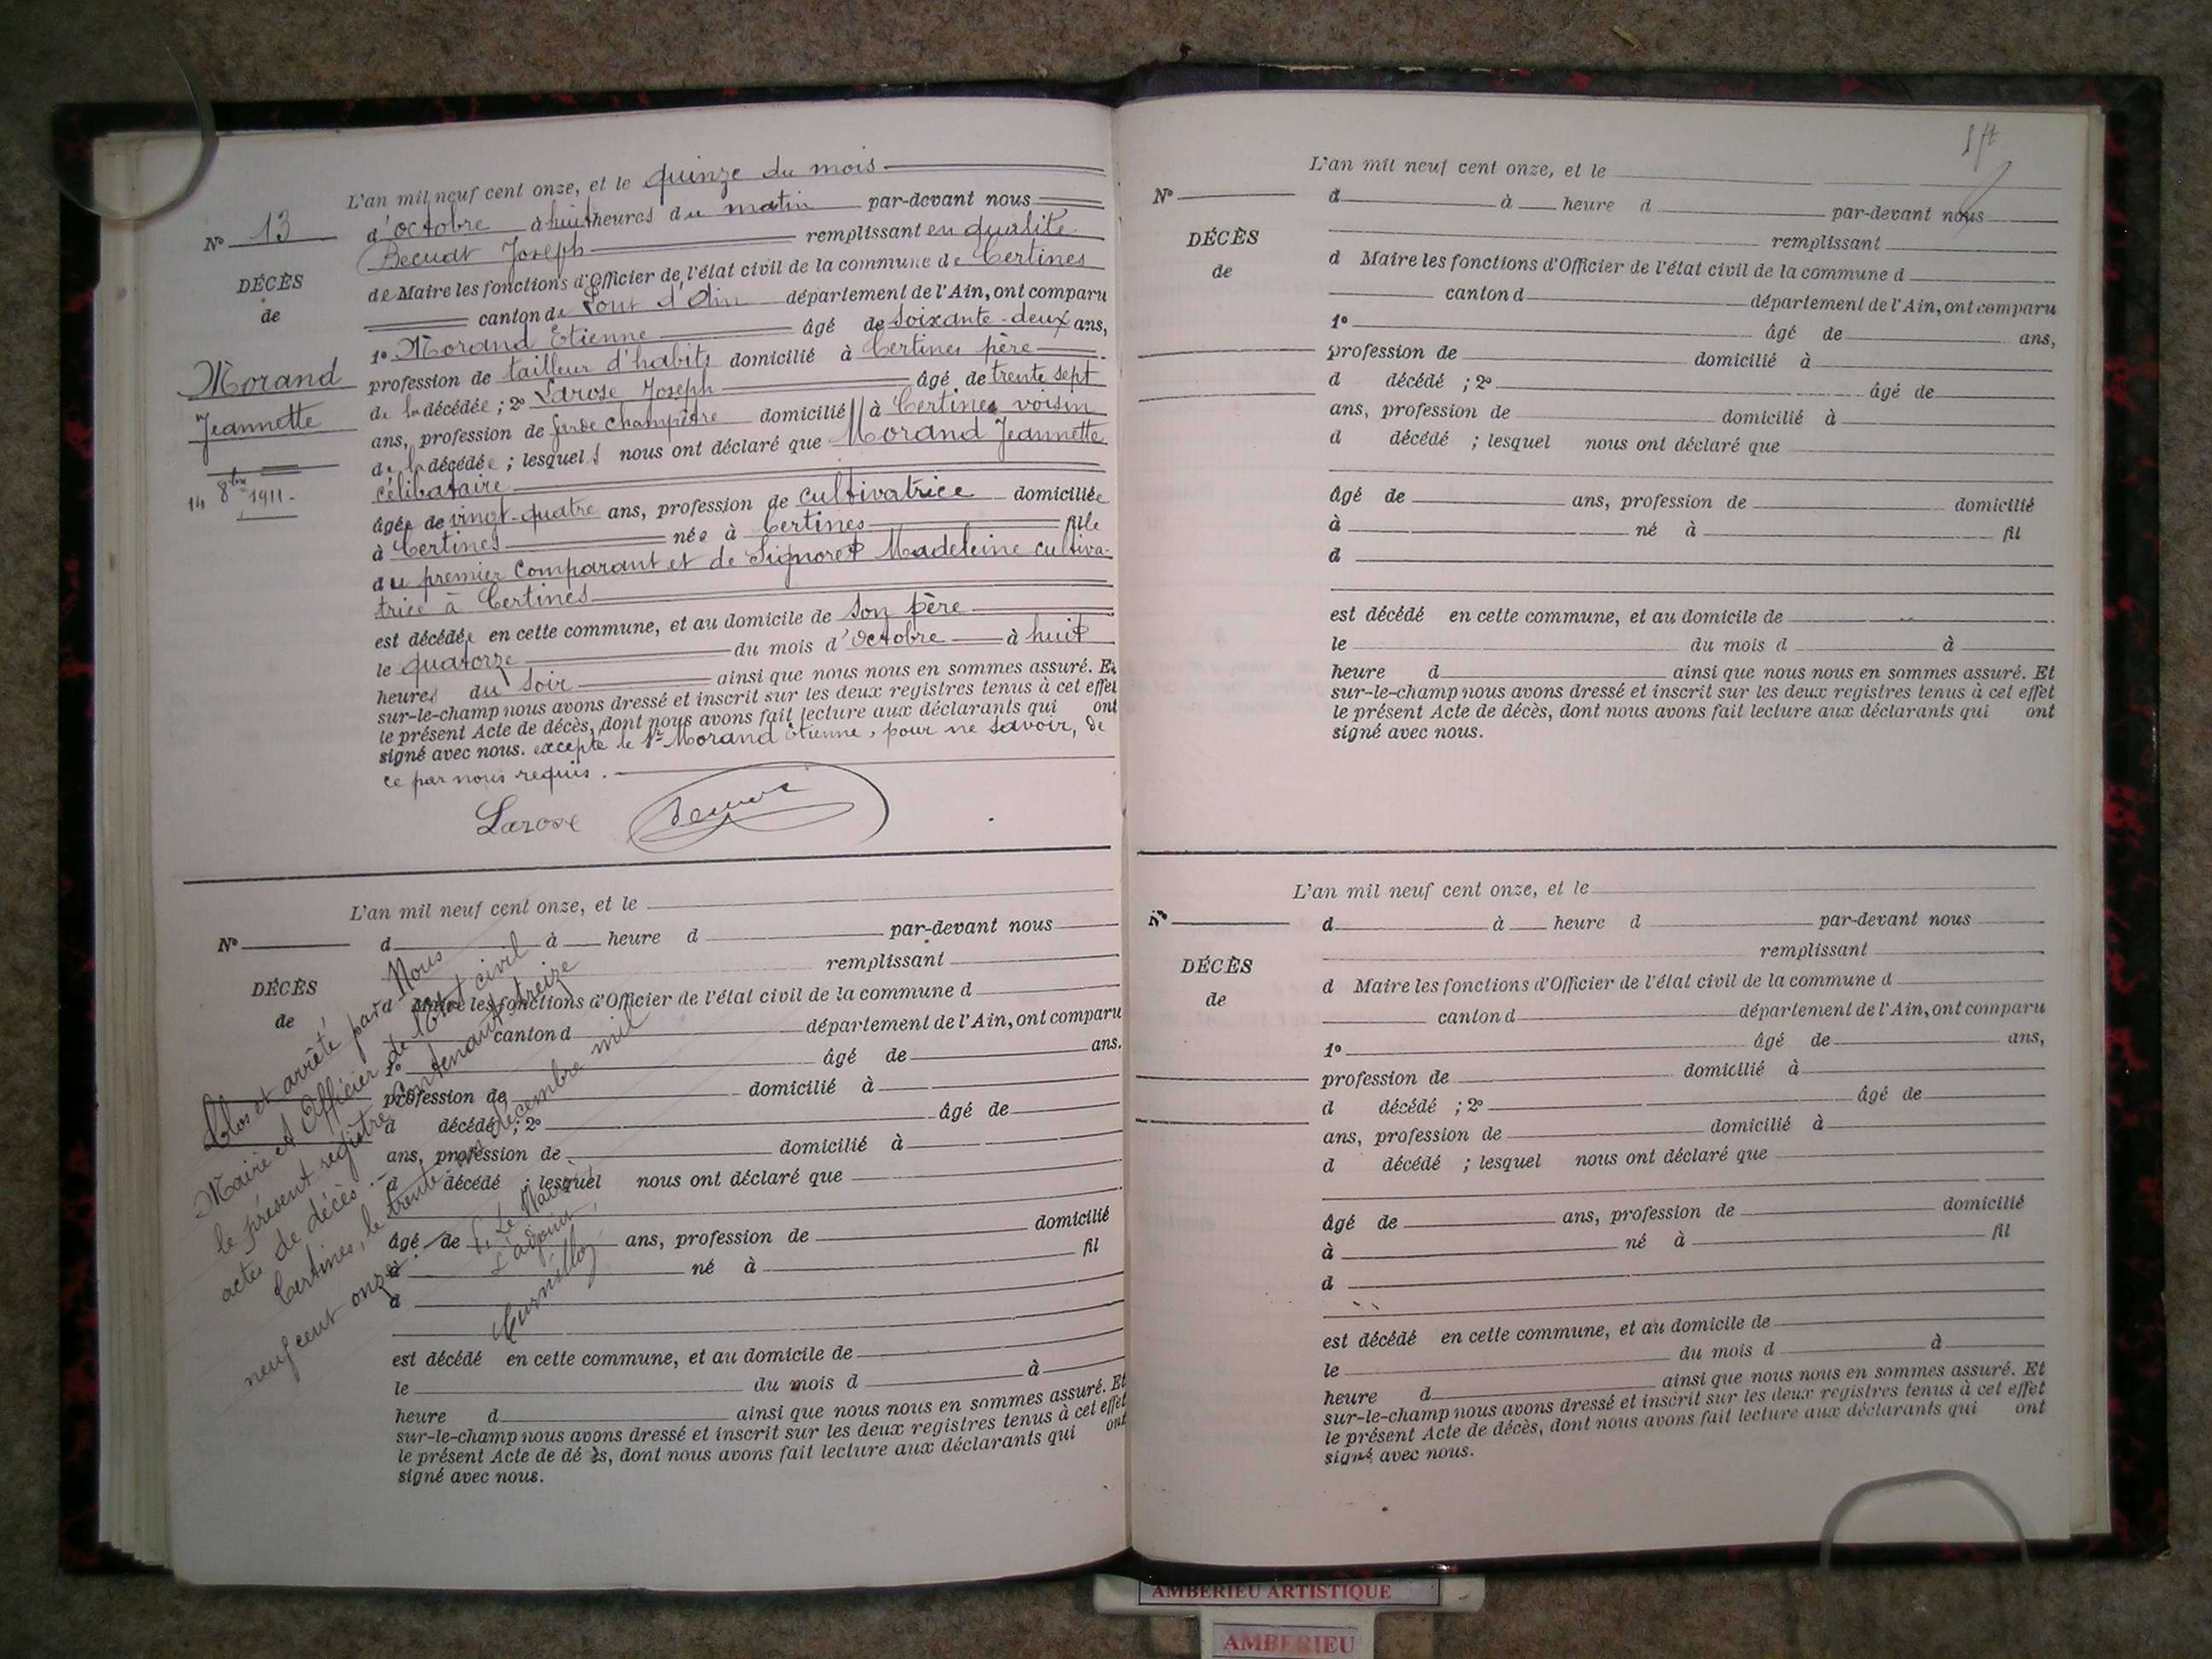 L'an mil neuf cent onze, et le quinze du mois
N° 13
d'octobre à huit heures du matin par-devant nous
Becudt Joseph remplissant en qualité
DÉCÈS
de
de Maire les fonctions d'Officier de l'état civil de la commune de Certines
canton de Pont d'Ain département de l'Ain, ont comparu
1° Morand Etienne âgé de soixante-deux ans,
Morand
Jeannette
14 8bre 1911.
profession de tailleur d'habits domicilié à Certines père
de la décédée ; 2° Larose Joseph âgé de trente sept
ans, profession de garde champêtre domicilié à Certines voisin
de la décédée ; lesquels nous ont déclaré que Morand Jeannette
célibataire
âgée de vingt-quatre ans, profession de cultivatrice domiciliée
à Certines née à Certines fille
du premier comparant et de Signoret Madeleine cultiva-
trice à Certines
est décédée en cette commune, et au domicile de son père
le quatorze du mois d'octobre à huit
heures du soir ainsi que nous nous en sommes assuré. Et
sur-le-champ nous avons dressé et inscrit sur les deux registres tenus à cet effet
le présent Acte de décès, dont nous avons fait lecture aux déclarants qui ont
signé avec nous. excepté le Sr Morand Etienne, pour ne savoir, de
ce par nous requis.
Larose
L'an mil neuf cent onze, et le
N° d à heure d par-devant nous
remplissant
DÉCÈS
de
d Maire les fonctions d'Officier de l'état civil de la commune d
canton d département de l'Ain, ont comparu
1° âgé de ans.
profession de domicilié à
d décédé ; 2° âgé de
ans, profession de domicilié à
d décédé ; lesquel nous ont déclaré que
âgé de ans, profession de domicilié
à né à fil
d
est décédé en cette commune, et au domicile de
le du mois d à
heure d ainsi que nous nous en sommes assuré. Et
sur-le-champ nous avons dressé et inscrit sur les deux registres tenus à cet effet
le présent Acte de décès, dont nous avons fait lecture aux déclarants qui ont
signé avec nous.
Clos et arrêté par Nous
Maire et Officier de l'Etat civil
le présent registre contenant treize
actes de décès.
Certines, le trente un décembre mil
neuf cent onze.
P. Le Maire
L'adjoint,
L'an mil neuf cent onze, et le
N° d à heure d par-devant nous
remplissant
DÉCÈS
de
d Maire les fonctions d'Officier de l'état civil de la commune d
canton d département de l'Ain, ont comparu
1° âgé de ans,
profession de domicilié à
d décédé ; 2° âgé de
ans, profession de domicilié à
d décédé ; lesquel nous ont déclaré que
âgé de ans, profession de domicilié
à né à fil
d
est décédé en cette commune, et au domicile de
le du mois d à
heure d ainsi que nous nous en sommes assuré. Et
sur-le-champ nous avons dressé et inscrit sur les deux registres tenus à cet effet
le présent Acte de décès, dont nous avons fait lecture aux déclarants qui ont
signé avec nous.
L'an mil neuf cent onze, et le
N° d à heure d par-devant nous
remplissant
DÉCÈS
de
d Maire les fonctions d'Officier de l'état civil de la commune d
canton d département de l'Ain, ont comparu
1° âgé de ans,
profession de domicilié à
d décédé ; 2° âgé de
ans, profession de domicilié à
d décédé ; lesquel nous ont déclaré que
âgé de ans, profession de domicilié
à né à fil
d
est décédé en cette commune, et au domicile de
le du mois d à
heure d ainsi que nous nous en sommes assuré. Et
sur-le-champ nous avons dressé et inscrit sur les deux registres tenus à cet effet
le présent Acte de décès, dont nous avons fait lecture aux déclarants qui ont
signé avec nous.
AMBERIEU ARTISTIQUE
AMBERIEU